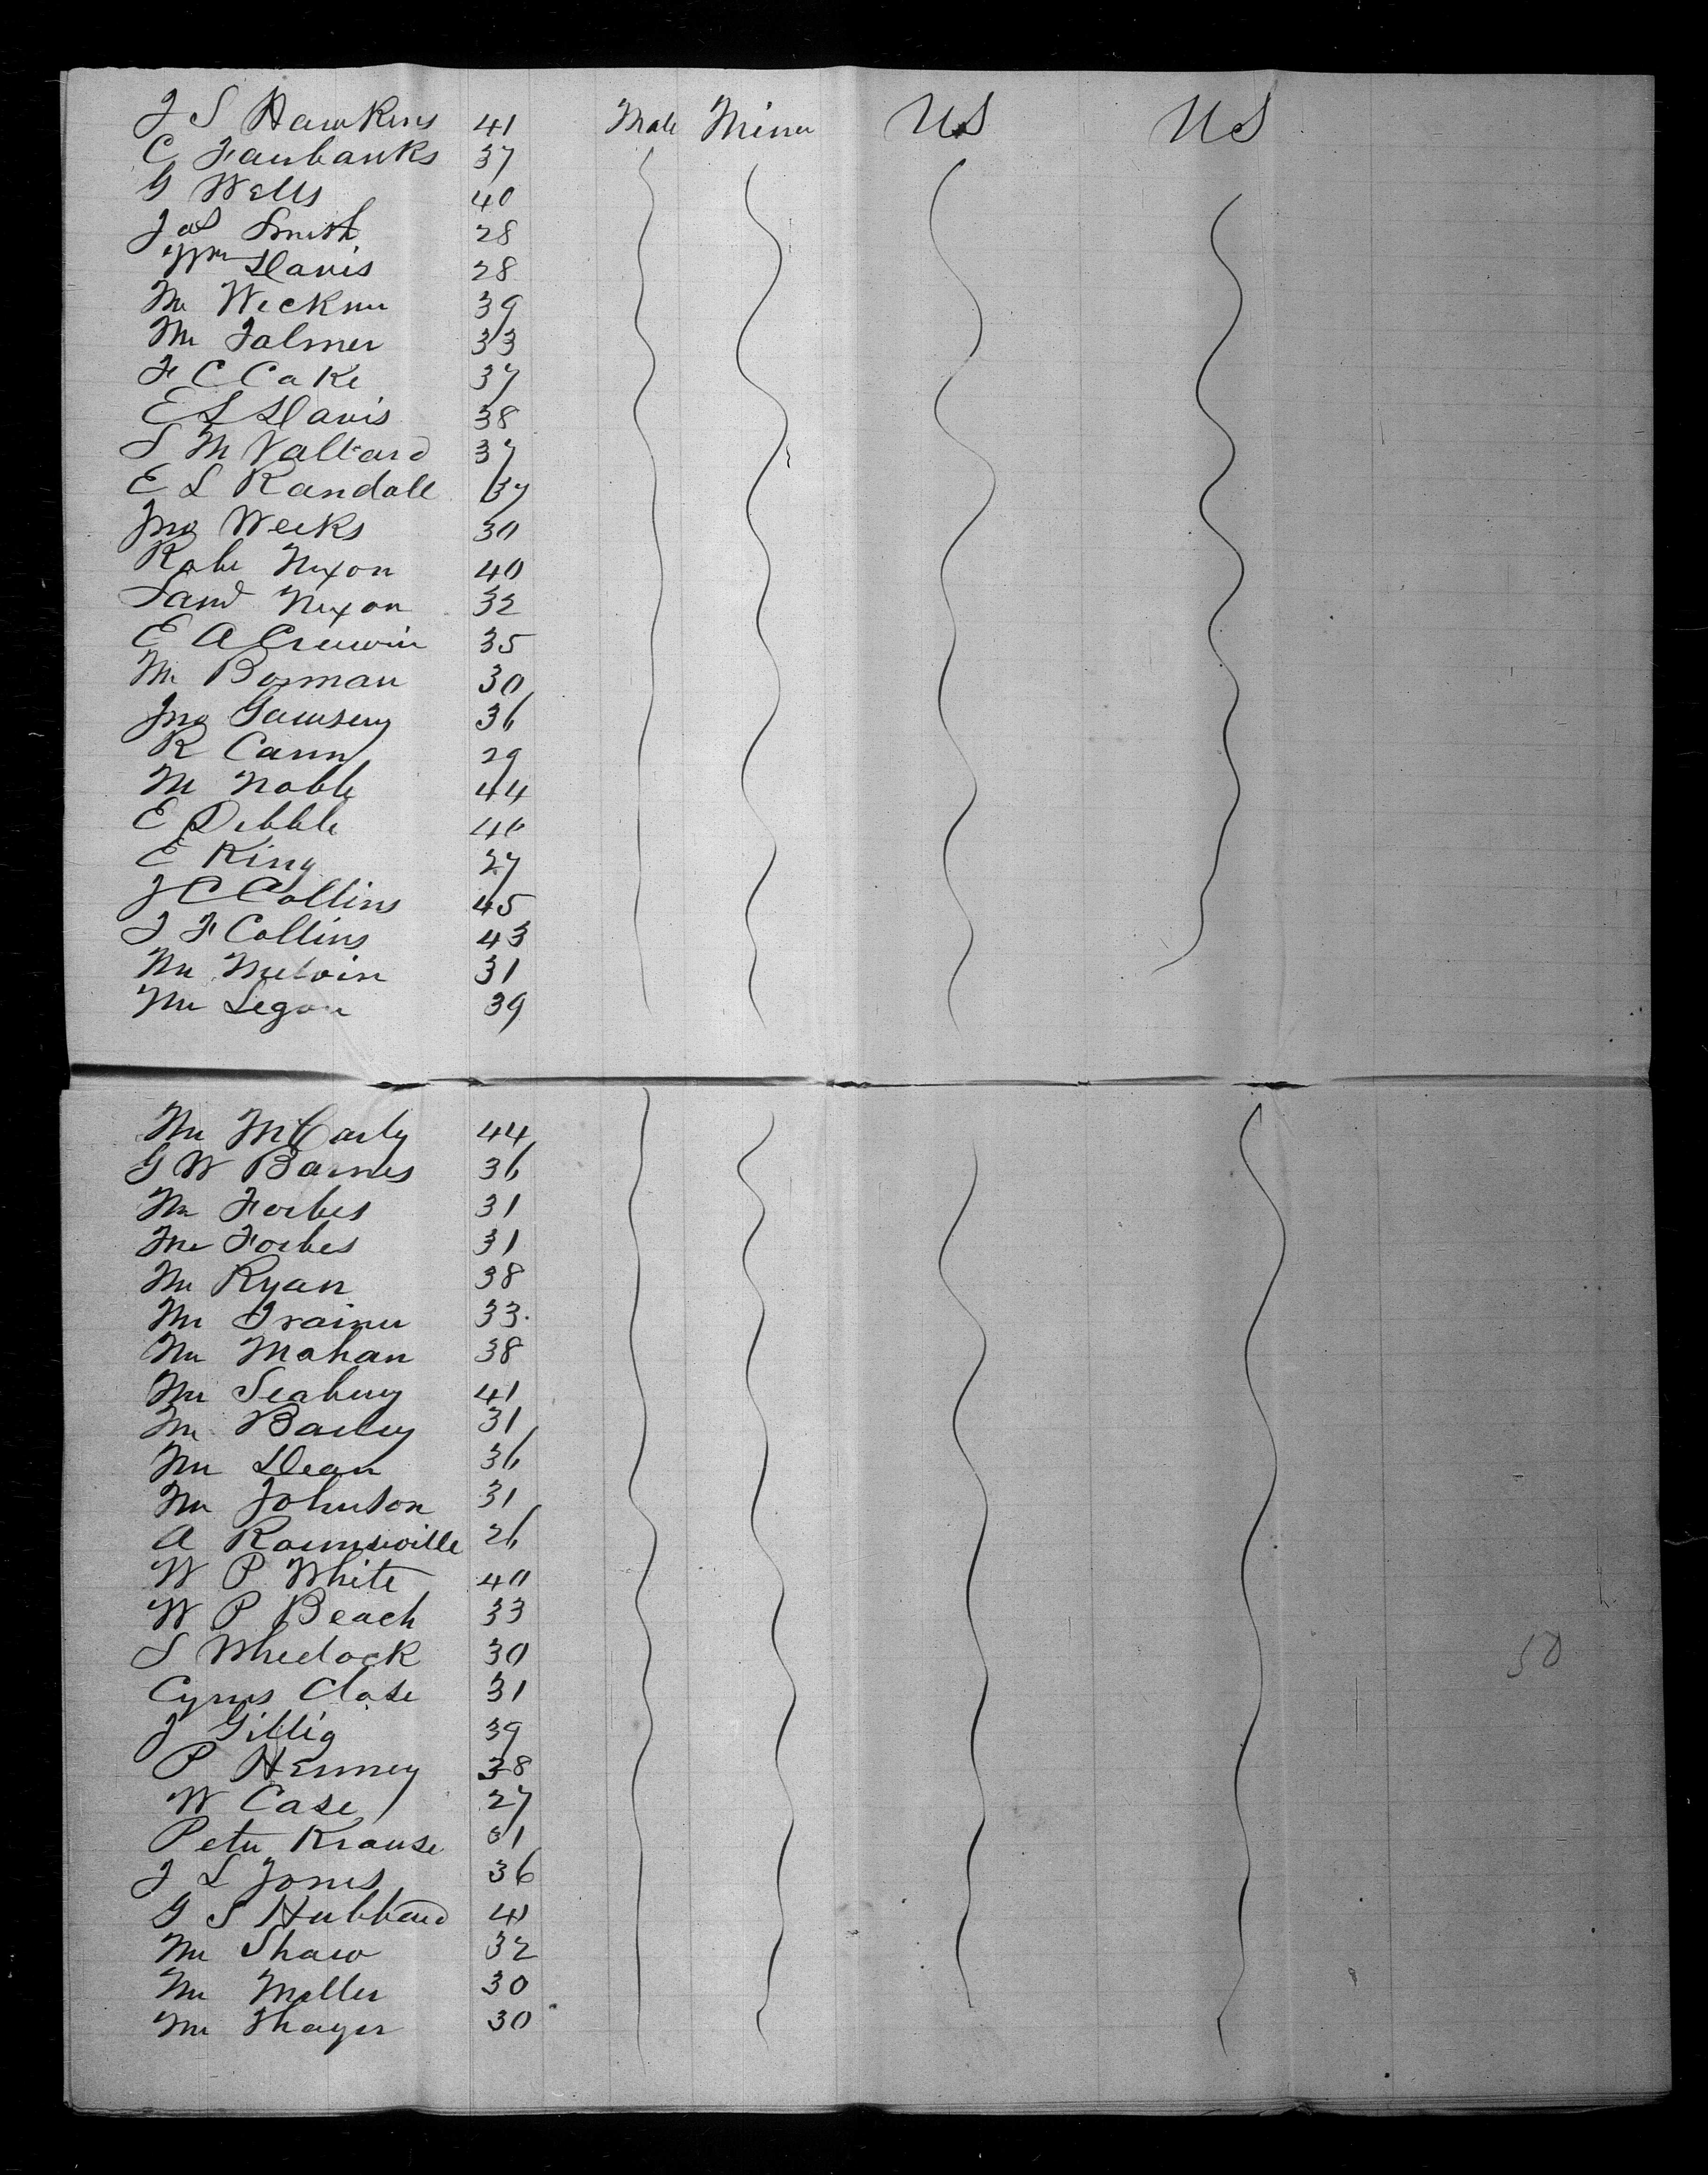 J S Hawkins 41 Male Miner US US
C Faubanks 37
G Wells 40
Jas Smith 28
Wm Davis 28
Mr 39
Mr 33
F C Cake 37
E L Davis 38
S M 37
E L Randall 37
Jno Weeks 30
Robe Nixon 40
Saml Nixon 32
E A 35
Mr Borman 30
Jno 36
R Cann 29
Mr Noble 44
E Dibble 40
E King 27
J C Collins 45
J F Collins 43
Mr Melvin 31
Mr Legon 39
Mr McCarty 44
G W Barnes 36
Mr Forbes 31
Mr Forbes 31
Mr Ryan 38
Mr Trainer 33
Mr Mahan 38
Mr Seabury 41
Mr Bailey 31
Mr Dean 36
Mr Johnson 31
A Rounseville 26
W P White 40
W P Beach 33
S Wheelock 30 50
Cyrus Close 31
J Gillig 39
P Henney 38
W Case 27
Peter Krause 31
J L Jones 36
G S Hubbard 41
Mr Shaw 32
Mr Miller 30
Mr Thayer 30